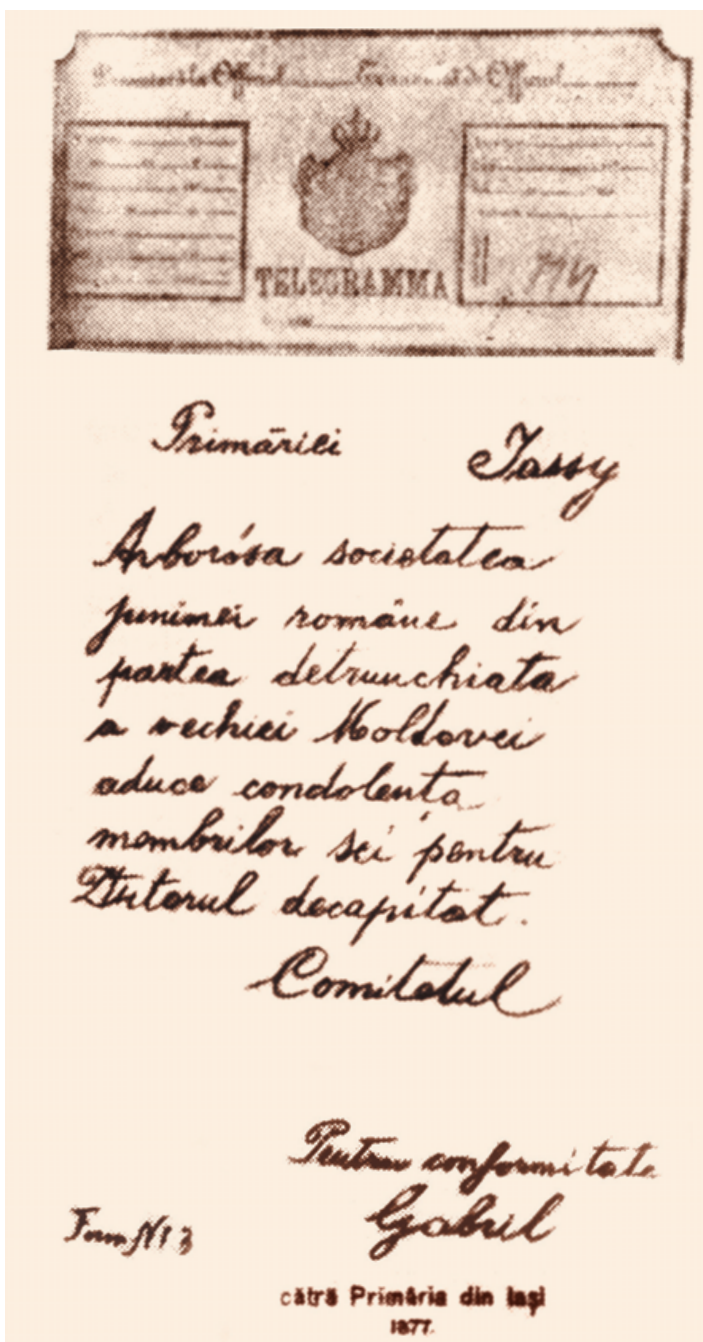 TELEGRAMMA
Primăriei Jassy
Arborósa societatea
junimei române din
partea detrunchiata
a vechiei Moldovei
aduce condolenta
membrilor sei pentru
decapitat.
Comitetul
Pentru conformitate
Gabril
cătră Primăria din Iaşi
1877.